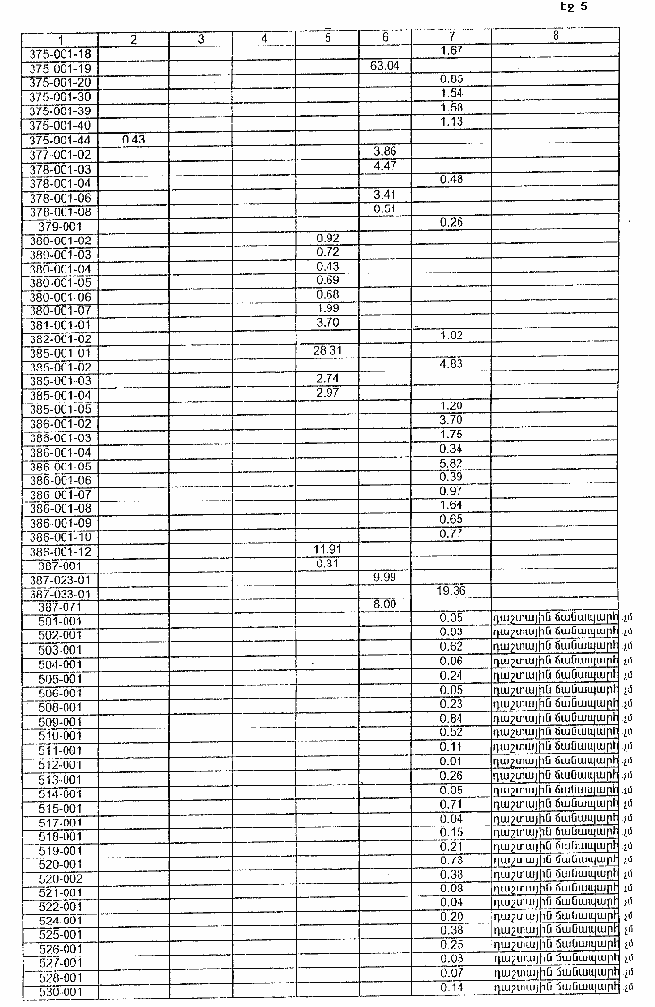 Էջ 5
1 2 3 4 5 6 7 8
375-001-18 1.67
375-001-19 63.04
375-001-20 0.05
375-001-30 1.54
375-001-39 1.58
375-001-40 1.13
375-001-44 0.43
377-001-02 3.86
378-001-03 4.47
378-001-04 0.48
378-001-06 3.41
378-001-08 0.51
379-001 0.26
380-001-02 0.92
380-001-03 0.72
380-001-04 0.43
380-001-05 0.69
380-001-06 0.68
380-001-07 1.99
381-001-01 3.70
382-001-02 1.02
385-001-01 28.31
385-001-02 4.83
385-001-03 2.74
385-001-04 2.97
385-001-05 1.20
386-001-02 3.70
386-001-03 1.75
386-001-04 0.34
386-001-05 5.82
386-001-06 0.39
386-001-07 0.97
386-001-08 1.64
386-001-09 0.65
386-001-10 0.77
386-001-12 11.91
387-001 0.31
387-023-01 9.99
387-033-01 19.36
387-071 8.00
501-001 0.05 դաշտային ճանապարհ
502-001 0.03 դաշտային ճանապարհ
503-001 0.62 դաշտային ճանապարհ
504-001 0.06 դաշտային ճանապարհ
505-001 0.24 դաշտային ճանապարհ
506-001 0.05 դաշտային ճանապարհ
508-001 0.23 դաշտային ճանապարհ
509-001 0.64 դաշտային ճանապարհ
510-001 0.52 դաշտային ճանապարհ
511-001 0.11 դաշտային ճանապարհ
512-001 0.01 դաշտային ճանապարհ
513-001 0.26 դաշտային ճանապարհ
514-001 0.05 դաշտային ճանապարհ
515-001 0.71 դաշտային ճանապարհ
517-001 0.04 դաշտային ճանապարհ
518-001 0.15 դաշտային ճանապարհ
519-001 0.21 դաշտային ճանապարհ
520-001 0.73 դաշտային ճանապարհ
520-002 0.38 դաշտային ճանապարհ
521-001 0.09 դաշտային ճանապարհ
522-001 0.04 դաշտային ճանապարհ
524-001 0.20 դաշտային ճանապարհ
525-001 0.38 դաշտային ճանապարհ
526-001 0.25 դաշտային ճանապարհ
527-001 0.03 դաշտային ճանապարհ
528-001 0.07 դաշտային ճանապարհ
530-001 0.14 դաշտային ճանապարհ